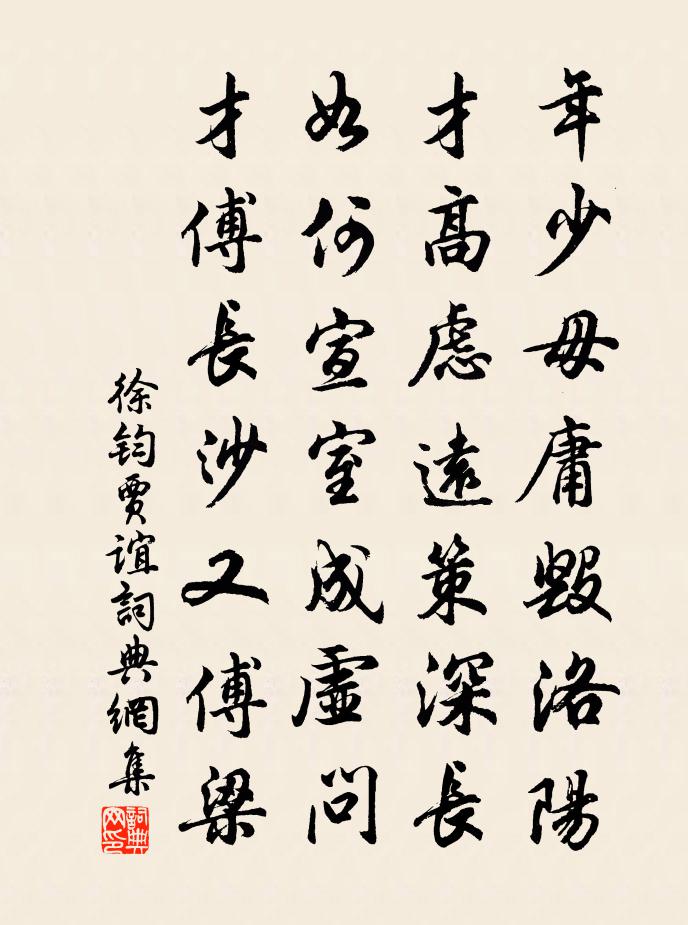 年少毋庸毀洛陽
才高慮遠策深長
如何宣室成虛問
才傅長沙又傅梁
徐鈞賈誼詞典網集
詞典网印